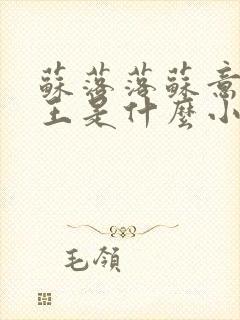 蘇落落蘇意
主是什麼小
毛領